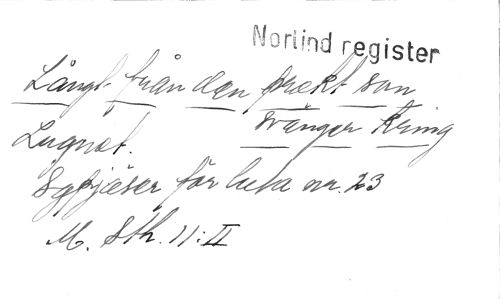 Norlind register
Långt från den prakt som
svänger kring
Lugnet.
för luta nr. 23
M. Sth. 11:II